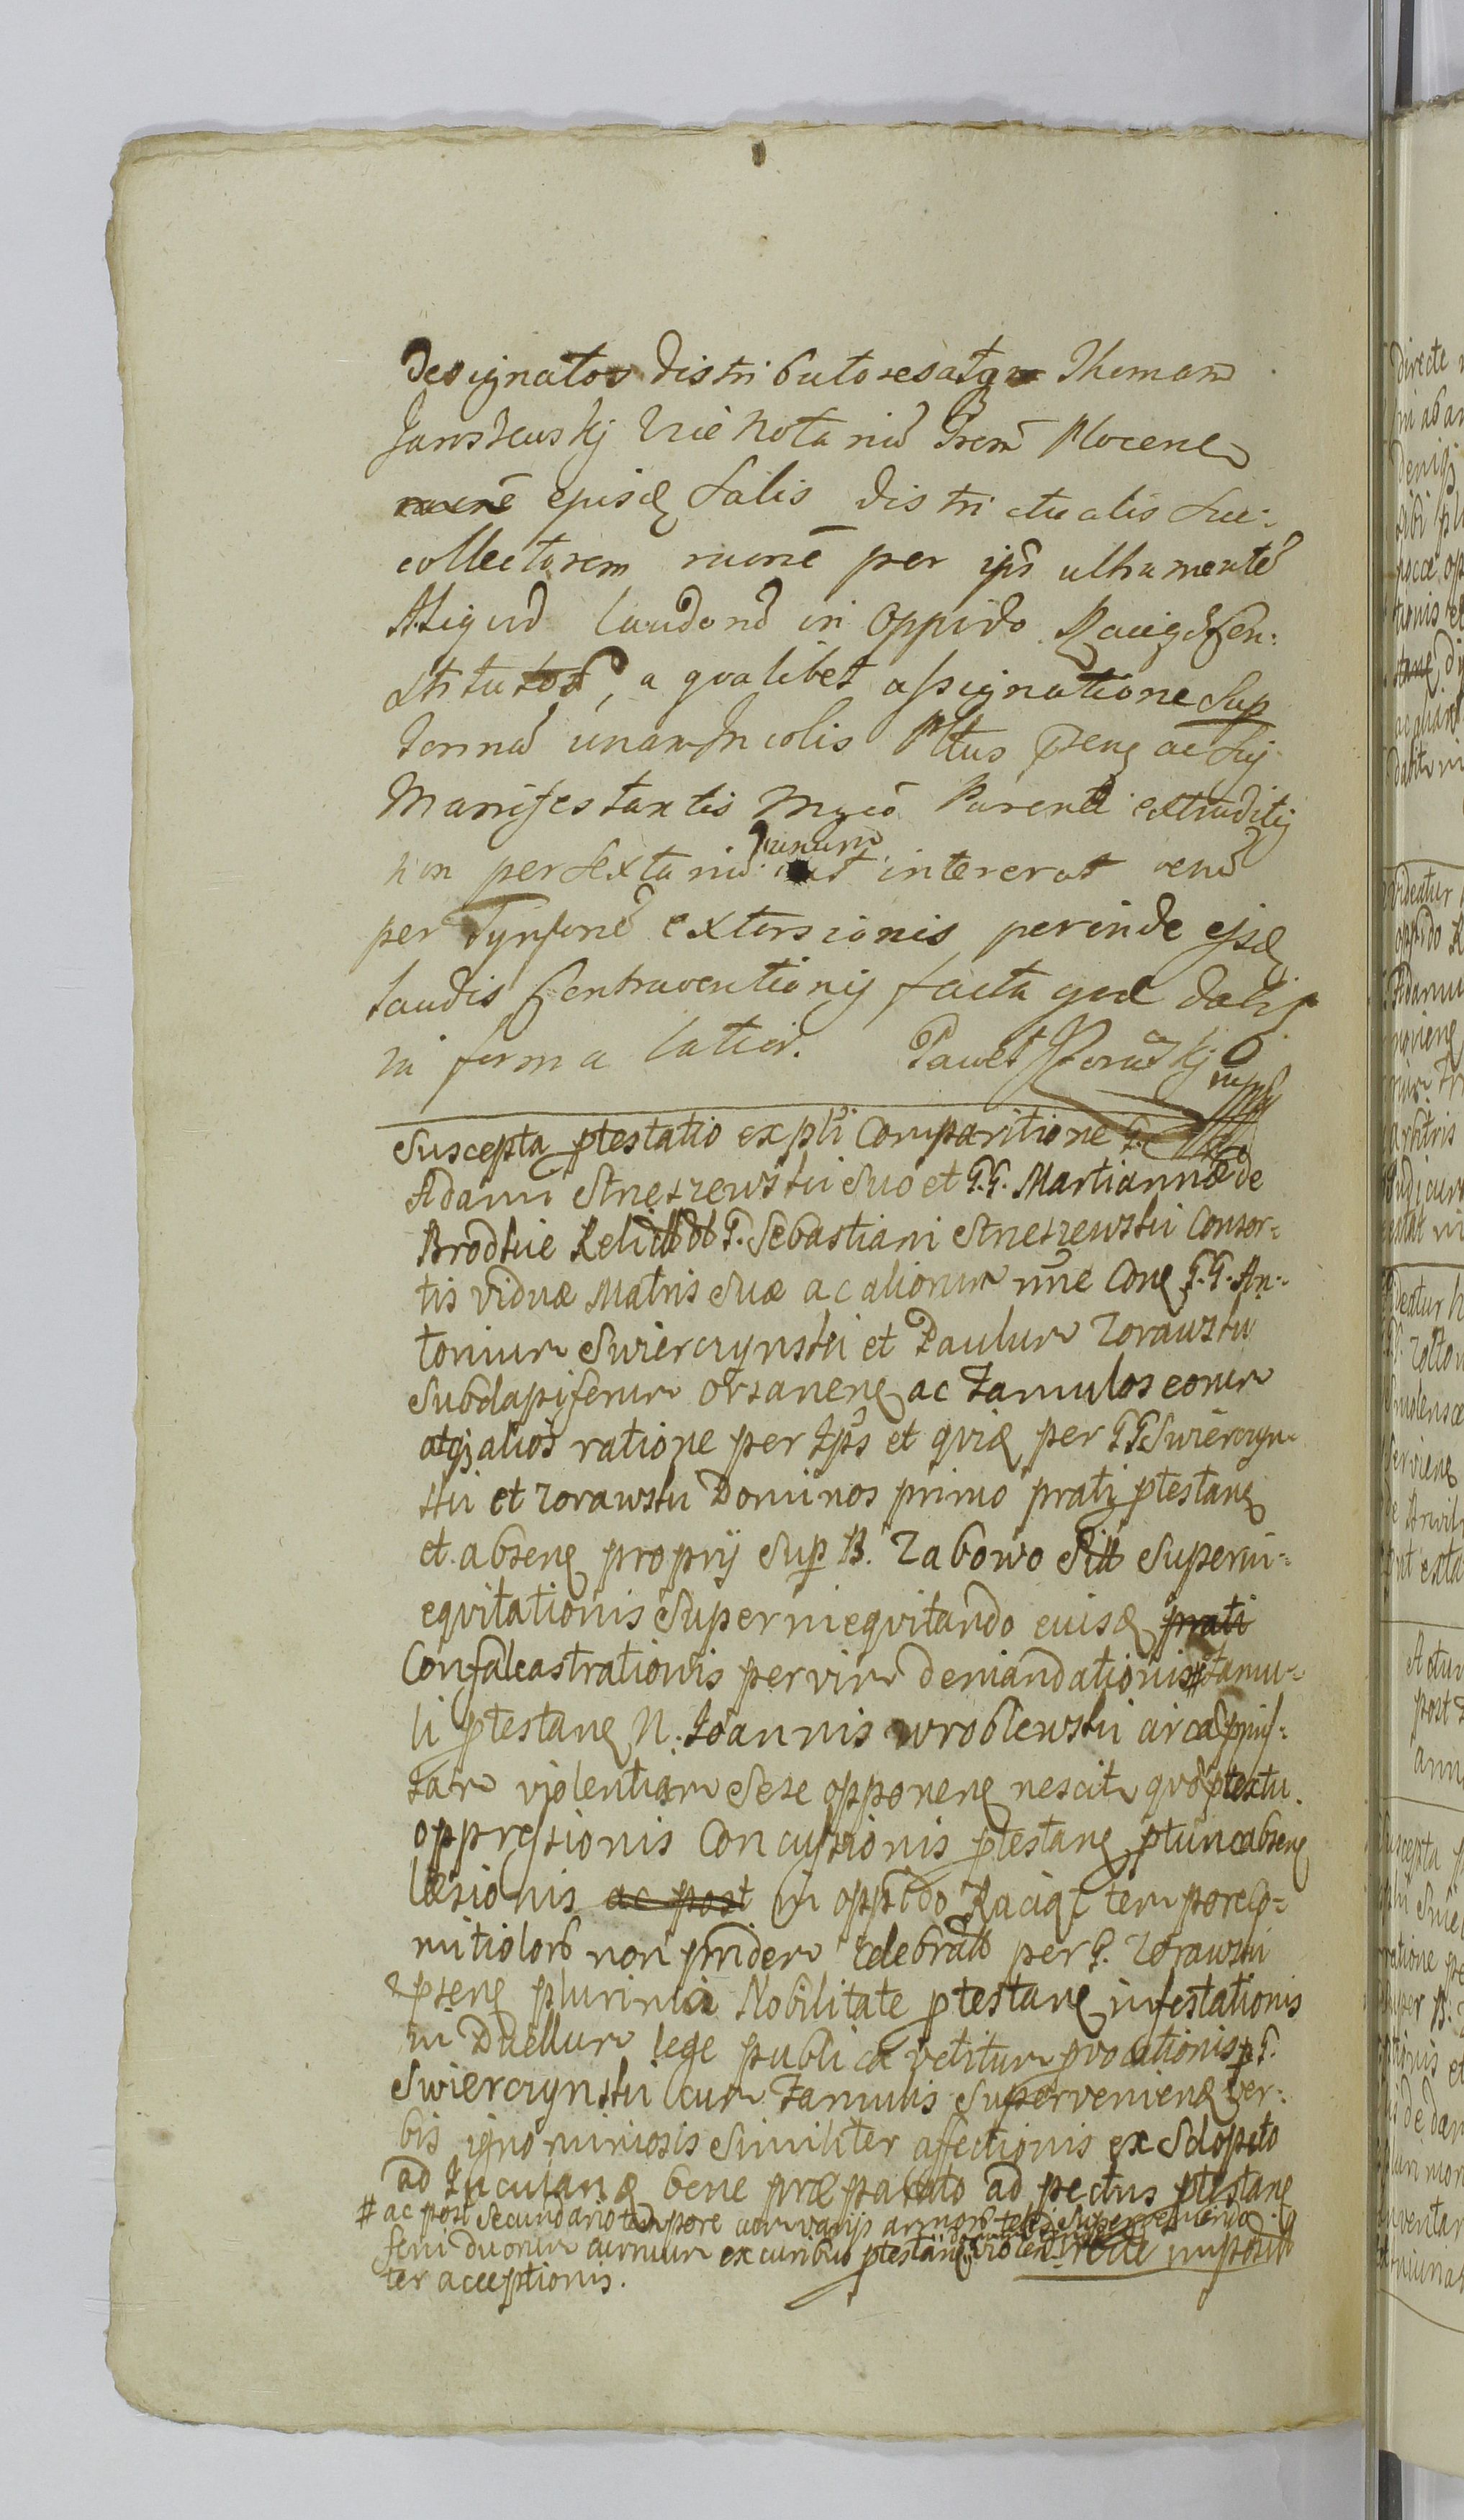 Designatos distributores atq Thomam
Jaroszewskj Vice Notariũ Trem̃ Plocene
ejusd Salis districtualis Suc:
collectorem nunc̃ per ips̃ ultramentẽ
laudonũ in Oppido Raciąż Con:
stitutos, a qvalibet assignatione Sup
Tonnaũ unam Incolis Pltus Dene ac Suj
Manifestantis Mgcõ Parenti extraditis
non per sextariũ unum intererat
per Tynfonẽ extorsionis perinde ejsd
Laudis Contraventionis facta qvae dabit
in forma latior. Paweł
Suscepta ptestatio expłi Comparitione G.
Adami Strzeszewski Suo et G.G. Martiannæ de
Brodkie Relictæ G. Sebastiani Strzeszewski Consor=
tis Viduæ Matris Suæ ac aliorum nne Cone G.G. An=
tonium Swierczynski et Paulum Zorawski
Subdapiferum Orsanene ac Famulos eorum
atq alios ratione per Ips̃ et qvid per GG Swierczyn=
ski et Zorawski Dominos primo prati ptestane
et absene proprij Sup B. Zabowo Sitt Superin=
eqvitationis Superineqvitando eiusd prati
Confalcastrationis per vim demandationis # Famu=
li ptestane N. Joannis Wroblewski circa
tam violentiam Sese opponene nescit qvo ptextu
oppressionis Concussionis ptestane ptunc absene
læsionis ac post in oppido Raciąż tempore Co=
mitiolorũ non pridem Celebratt per G. Zorawski
psene plurima Nobilitate ptestane infestationis
in Duellum lege publica vetitum pvocationis p G.
Swierczynski cum Famulis Superveniene ver=
bis ignominiosis Similiter affectionis ex Sclopeto
ad Jaculand bene præparato ad pectus ptestane
# ac post Secundario tempore cum varijs armorũ telis Superveniendo
feni duorum curruum ex curribus ptestane violen= recte impositt
ter acceptionis.